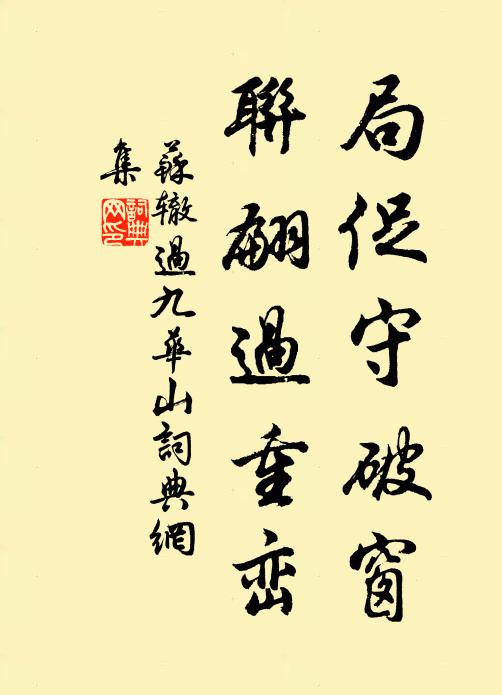 局促守破窗
聯翩過重峦
蘇辙過九華山詞典網
集
詞典网印